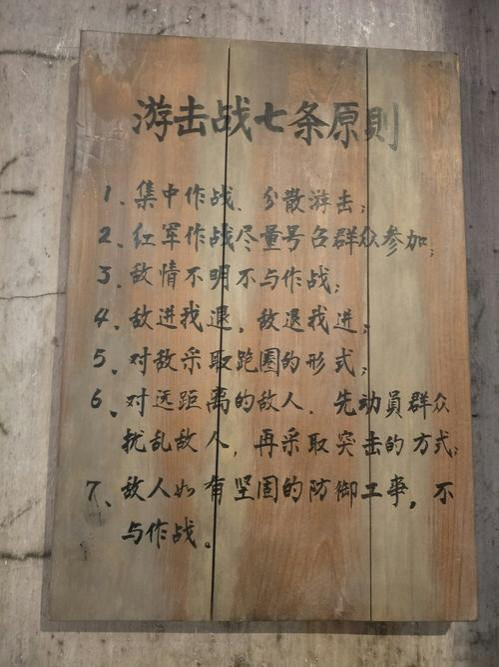 游击战七条原則
1、集中作战、分散游击；
2、红军作战尽量号召群众参加；
3、敌情不明不与作战；
4、敌进我退，敌退我进；
5、对敌采取跑圈的形式；
6、对远距离的敌人、先动員群众
扰乱敌人，再采取突击的方式；
7、敌人如有坚固的防御工事，不
与作战。